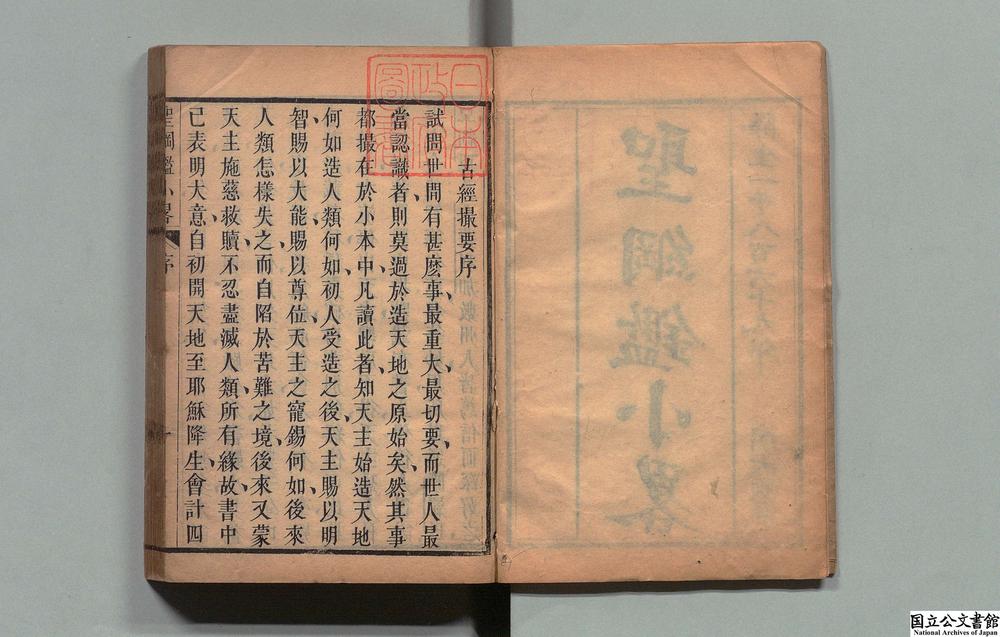 聖綱鑑小畧
古經撮要序
試問世間有甚麽事最重大最切要、而世人最
當認識者、則莫過於造天地之原始矣、然其事
都撮在於小本中、凡讀此者、知天主始造天地
何如、造人類何如、初人受造之後、天主賜以明
智、賜以大能、賜以尊位、天主之寵錫何如、後來
人類怎樣失之、而自陷於苦難之境、後來又蒙
天主施慈救贖、不忍盡滅人類所有緣故、書中
已表明大意、自初開天地至耶穌降生、會計四
聖綱鑑小畧 序 一
日本政府圖書
国立公文書館
National Archives of Japan